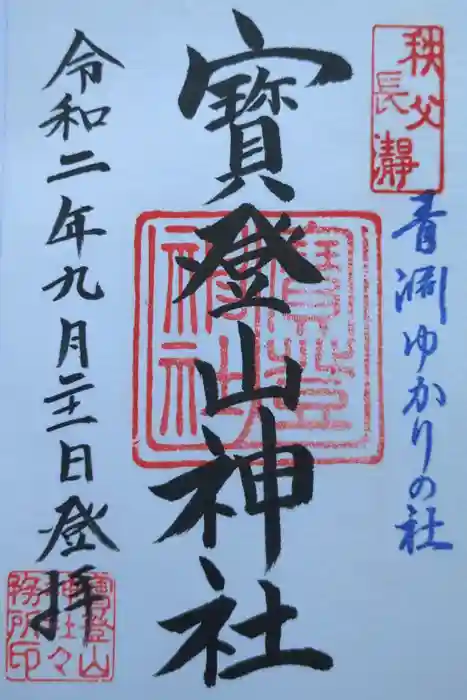 秩父
長瀞
青淵ゆかりの社
寳登山神社
令和二年九月二十一日登拝
寳登山
神社々
務所印